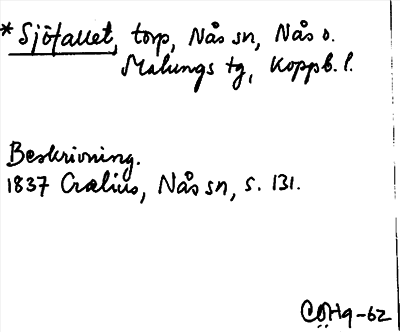 * Sjötallet, torp, Nås sn, Nås o.
Malungs tg, Koppb. l.
Beskrivning.
1837 Crælius, Nås sn, s. 131.
CÖHq-62